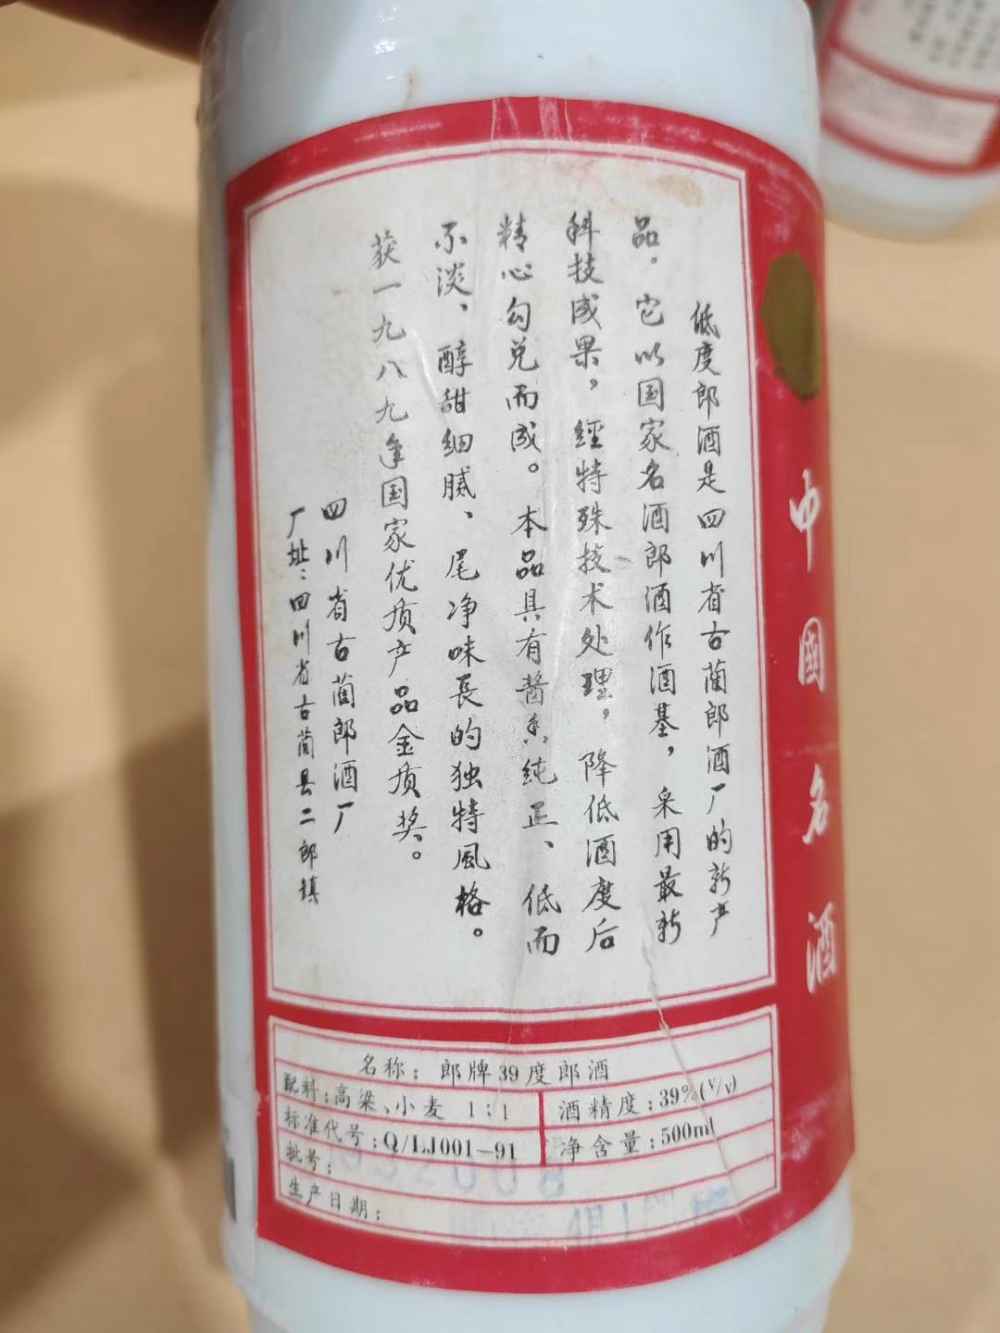 低度郎酒是四川省古蔺郎酒厂的新产
品。它以国家名酒郎酒作酒基，采用最新
科技成果，经特殊技术处理，降低酒度后
精心勾兑而成。本品具有酱香纯正、低而
不淡、醇甜细腻、尾净味長的独特風格。
获一九八九年国家优质产品金质奖。
四川省古蔺郎酒厂
厂址：四川省古蔺县二郎镇
中國名酒
名称：郎牌39度郎酒
配料：高粱、小麦 1：1
酒精度：39%(v/v)
标准代号：Q/LJ001—91
净含量：500ml
批号：
生产日期：